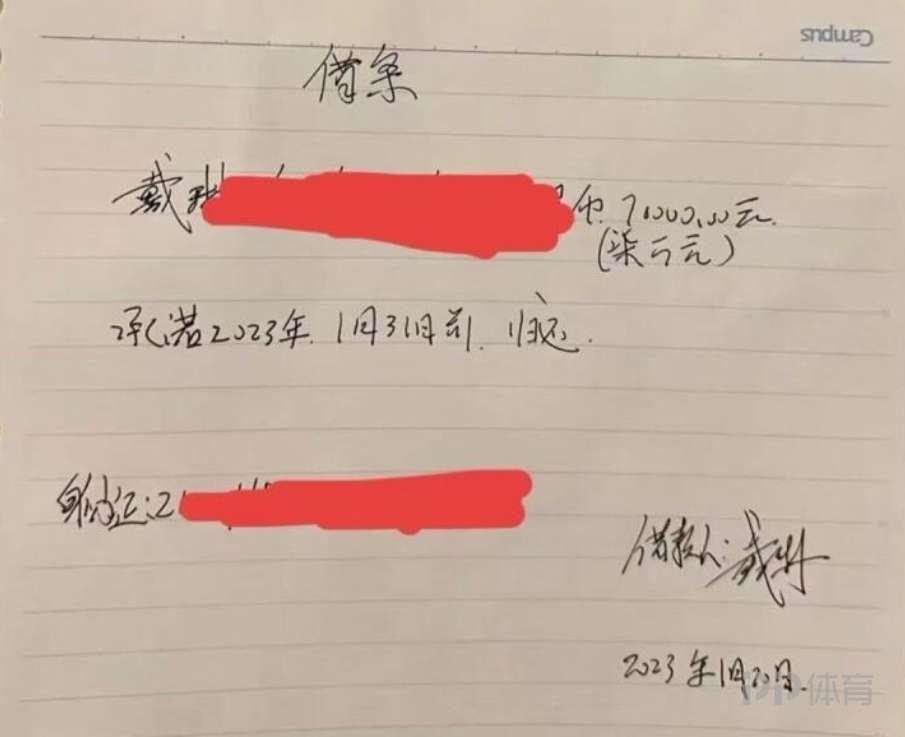 Campus
借条
戴琳 币 7,000.00元.
(柒千元)
承诺2023年.1月31日前.归还.
身份证:2
借款人:戴琳
2023年1月20日.
PP体育